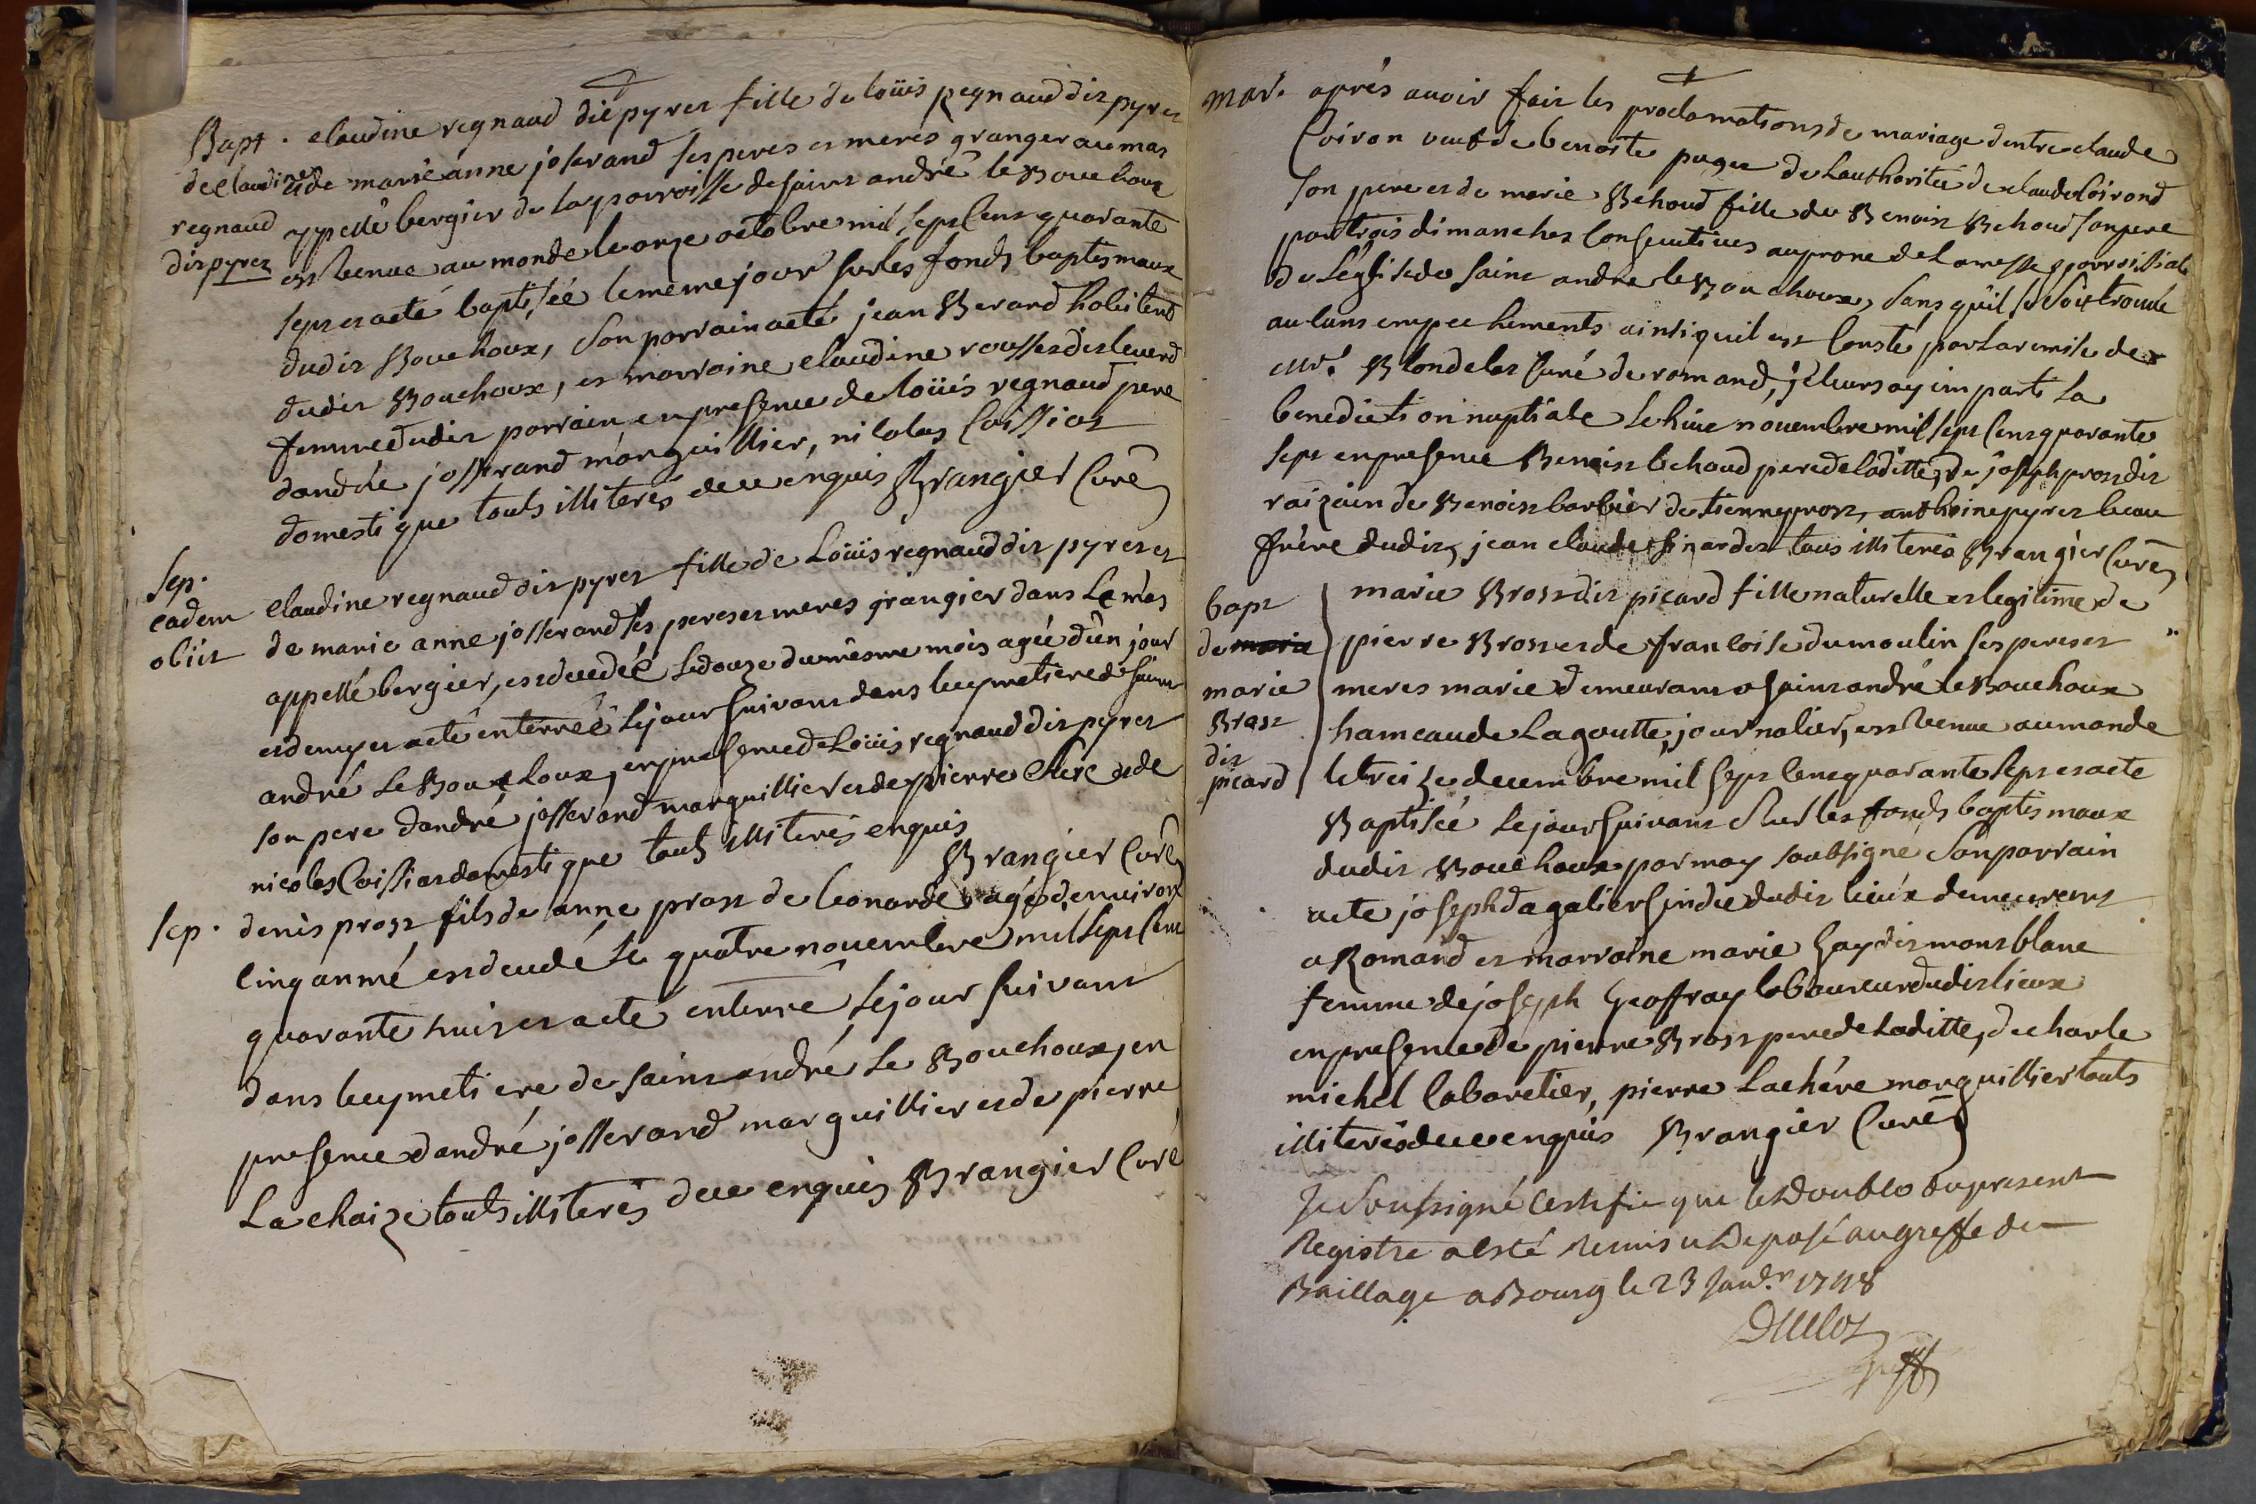 Bapt. claudine regnaud dit pyrez fille de loüis regnaud dit pyrez
de claudine et de marie anne joserand ses peres et meres granger au mas
regnaud appellé bergier de la parroisse de saint andré le Bouchoux
dit pyrez est venue au monde le onze octobre mil sept cent quarante
sept et a eté baptisée le meme jour sur les fonds baptismaux
dudit Bouchoux, son parrain a eté jean Berard habitent
dudit Bouchoux, et marraine claudine
femme dudit parrain en presence de loüis regnaud pere
dandré josserand marguillier, nicolas Coissiat
domestique touts illiterés de ce enquis Brangier Curé
Sep.
eadem claudine regnaud dit pyrez fille de Loüis regnaud dit pyrez et
obiit de marie anne josserand ses peres et meres grangier dans Le mas
appellé bergier, est decedée le douze du mesme mois agée d'un jour
et demy et a eté enterrée le jour suivant dans le cymetiere de saint
andré Le Bouchoux, en presence de Loüis regnaud dit pyrez
son pere dandré josserand marguillier et de pierre et de
nicolas Coissiat domestique touts illiterés enquis
Brangier Curé
Sep. denis prost fils de anne prost de leonarde agé d'environ
cinq anné est decedé le quatre novembre mil sept cent
quarante huit et a eté enterré le jour suivant
dans le cymetiere de saint andré Le Bouchoux, en
presence dandré josserand marguillier et de pierre
La chaize touts illiterés de ce enquis Brangier Curé
mar. aprés avoir fait les proclamations de mariage dentre claude
Coiron veuf de benoite puget de Lauthorité de claude Coirond
son pere et de marie Bchoud fille de Benoist Bchoud son pere
par trois dimanches consecutives au prone de La messe parroissiale
de L'église de saint andré le Bouchoux, sans quil se soit trouvé
aucuns empechements ainsi quil est Consté par La remise de
Mr. Blondelat Curé de romand, je leurs ay imparti La
benediction nuptiale Le huit novembre mil sept cent quarante
sept en presence Benoist bchoud pere de laditte, de joseph prost dit
raizain de Benoist barbier de tienne prost, anthoine pyrez beau
frére dudit, jean claude tous illiterés Brangier Curé
bapt marie Brost dit picard fille naturelle et legitime de
de marie pierre Brost et de francoise dumoulin ses peres et
marie meres marie demeurant a saint andré le Bouchoux
Brost hameau de Lagoutte, journalier, est venue au monde
dit
picard le treize decembre mil sept cent quarante sept et a eté
Baptisée le jour suivant sur les fonds baptismaux
dudit Bouchoux par moy soubsigné son parrain
a eté joseph dagalier sindic dudit lieux demeurent
a Romand et marraine marie Gay dit mont blanc
femme de joseph Geoffray laboureur dudit lieux
en presence de pierre Brost pere de Laditte, de charle
michel Cabaretier, pierre Lachére marguillier touts
illiterés de ce enquis Brangier Curé
Je Soussigné Certifie que le double du present
Registre a esté remis et deposé au greffe du
Baillage a Bourg le 23 Janv.r 1748
Duclos
greff